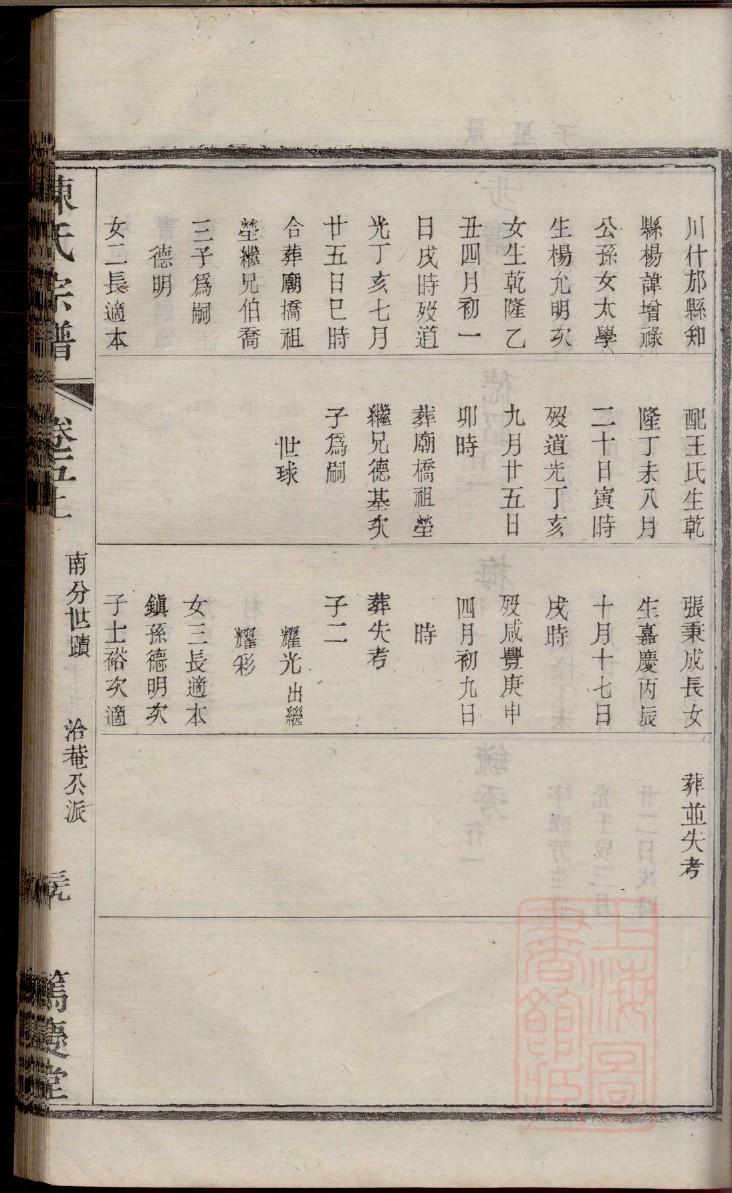 川什邡縣知
縣楊諱增祿
公孫女太學
生楊允明次
女生乾隆乙
丑四月初一
日戌時歿道
光丁亥七月
廿五日巳時
合葬廟橋祖
塋繼兄伯喬
三子爲嗣
德明
女二長適本
配王氏生乾
隆丁未八月
二十日寅時
歿道光丁亥
九月廿五日
卯時
葬廟橋祖塋
繼兄德基次
子爲嗣
世球
張秉成長女
生嘉慶丙辰
十月十七日
戌時
歿咸豐庚申
四月初九日
時
葬失考
子二
耀光出繼
耀彩
女三長適本
鎭孫德明次
子士裕次適
葬並失考
陳氏宗譜
卷五上
南分世蹟
治菴公派
元
篤慶堂
上海圖
書館藏